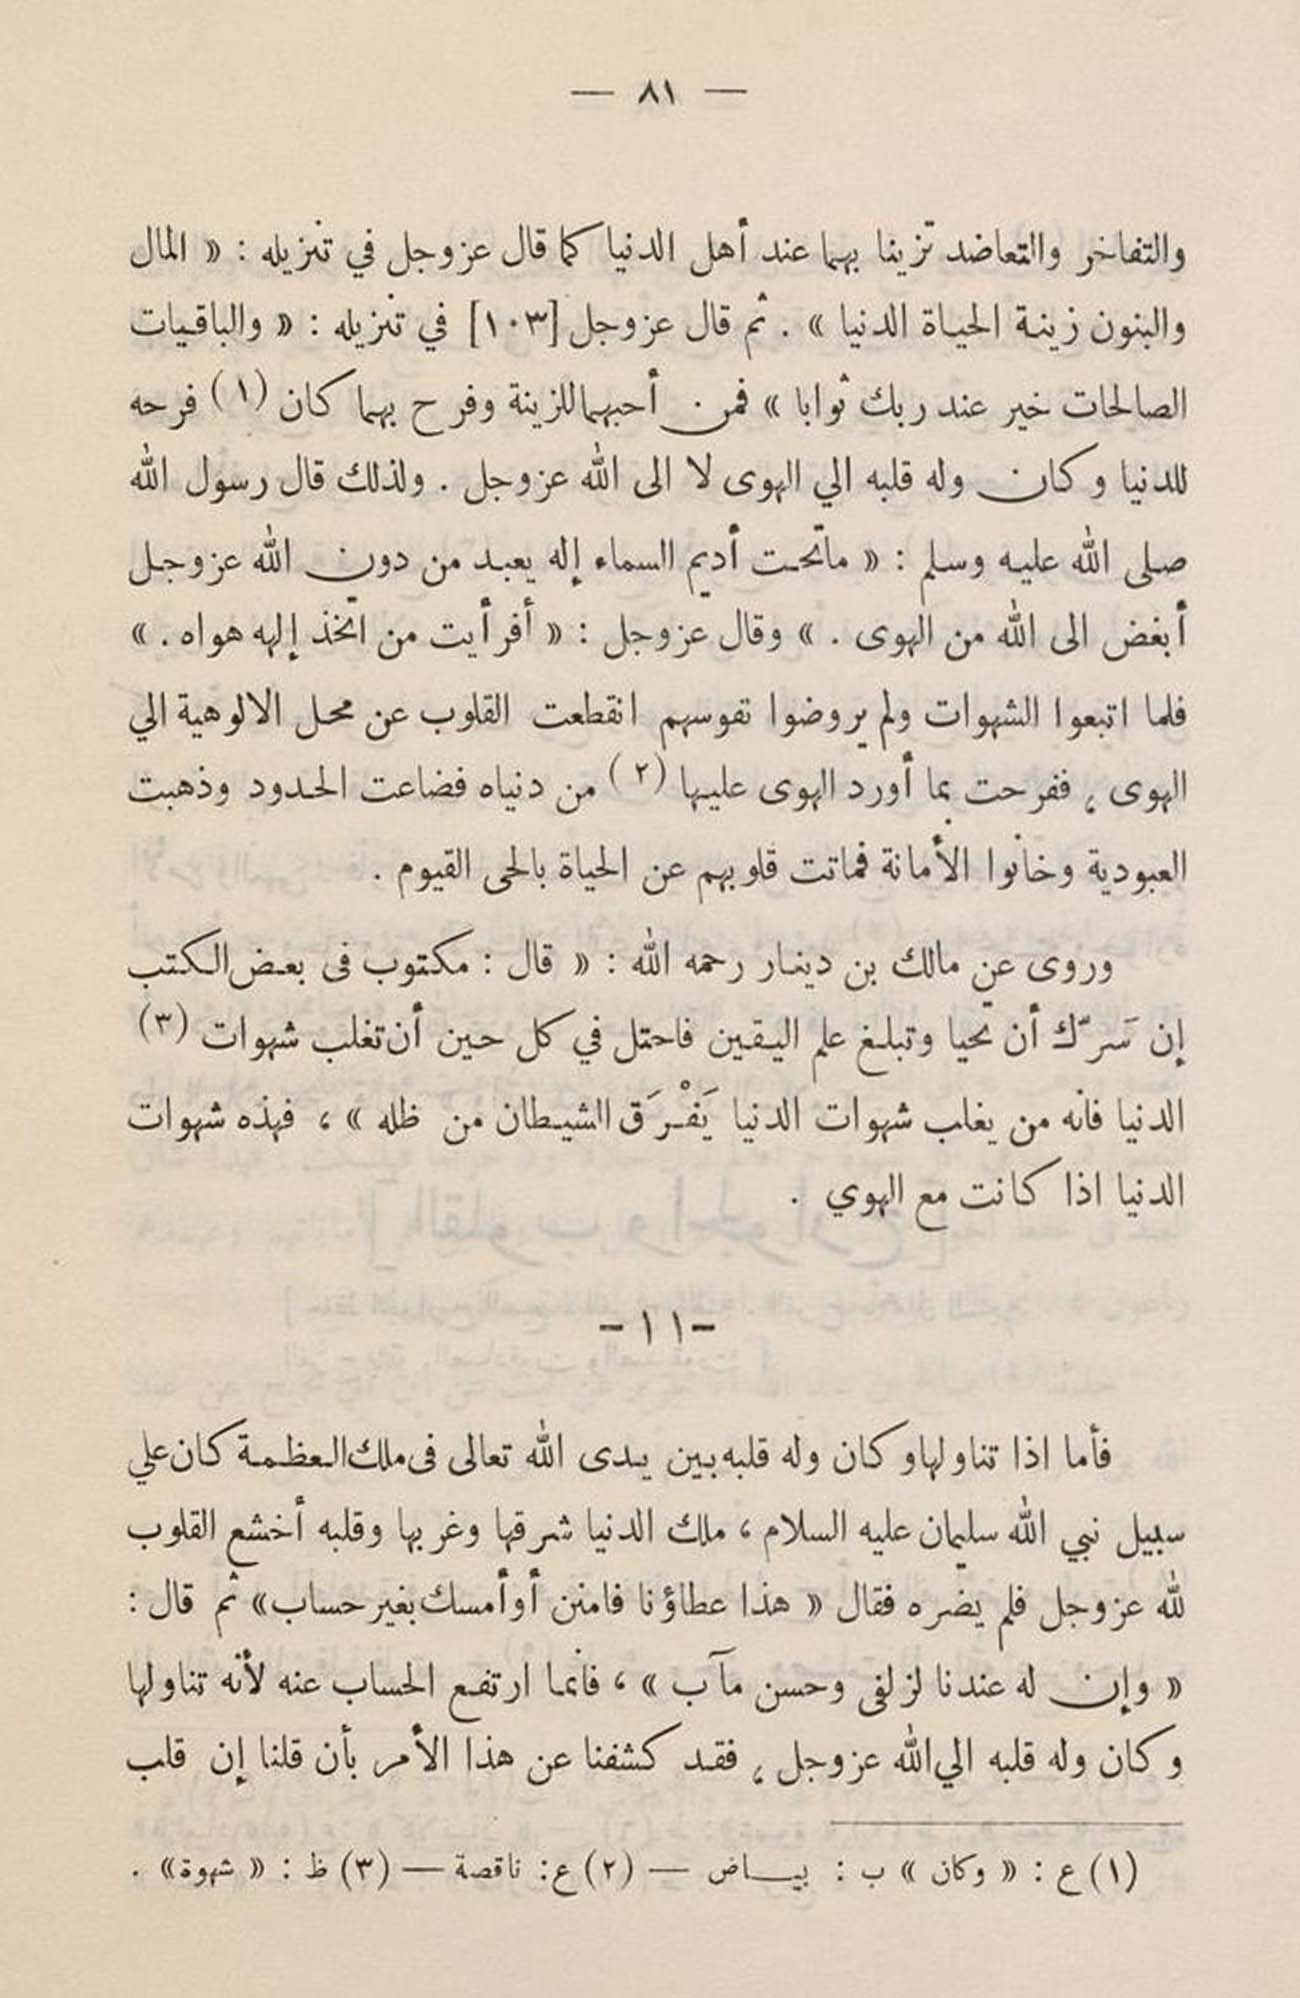 — ٨١ —
والتفاخر والتعاضد تزينا بهما عند أهل الدنيا كما قال عز وجل في تنزيله : « المال
والبنون زينة الحياة الدنيا » . ثم قال عز وجل [١٠٣] في تنزيله : « والباقيات
الصالحات خير عند ربك ثوابا » فمن أحبهما للزينة وفرح بهما كان (١) فرحه
للدنيا وكان وله قلبه الي الهوى لا الى الله عز وجل . ولذلك قال رسول الله
صلى الله عليه وسلم : « ما تحت أديم السماء إله يعبد من دون الله عز وجل
أبغض الى الله من الهوى . » وقال عز وجل : « أفرأيت من اتخذ إلهه هواه . »
فلما اتبعوا الشهوات ولم يروضوا نفوسهم انقطعت القلوب عن محل الالوهية الي
الهوى ، ففرحت بما أورد الهوى عليها (٢) من دنياه فضاعت الحدود وذهبت
العبودية وخانوا الأمانة فماتت قلوبهم عن الحياة بالحى القيوم .
وروى عن مالك بن دينار رحمه الله : « قال : مكتوب فى بعض الكتب
إن سَرّك أن تحيا وتبلغ علم اليقين فاحتل في كل حين أن تغلب شهوات (٣)
الدنيا فانه من يغلب شهوات الدنيا يَفْرَق الشيطان من ظله » ، فهذه شهوات
الدنيا اذا كانت مع الهوي .
- ١١ -
فأما اذا تناولها وكان وله قلبه بين يدى الله تعالى فى ملك العظمة كان علي
سبيل نبي الله سليمان عليه السلام ، ملك الدنيا شرقها وغربها وقلبه أخشع القلوب
لله عز وجل فلم يضره فقال « هذا عطاؤنا فامنن أو أمسك بغير حساب » ثم قال :
« وإن له عندنا لزلفى وحسن مآب » ، فانما ارتفع الحساب عنه لأنه تناولها
وكان وله قلبه الي الله عز وجل ، فقد كشفنا عن هذا الأمر بأن قلنا إن قلب
(١) ع : « وكان » ب : بياض — (٢) ع : ناقصة — (٣) ظ : « شهوة » .